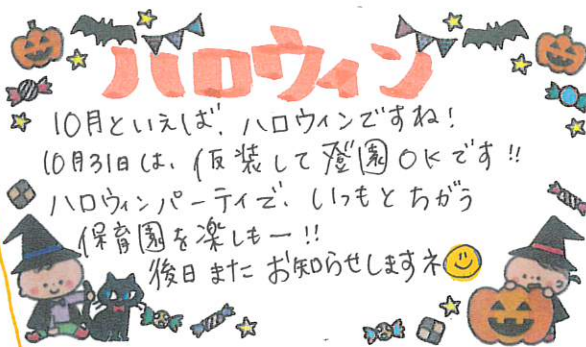 ハロウィン
10月といえば、ハロウィンですね！
10月31日は、仮装して登園OKです!!
ハロウィンパーティで、いつもとちがう
保育園を楽しもー!!
後日また お知らせしますネ